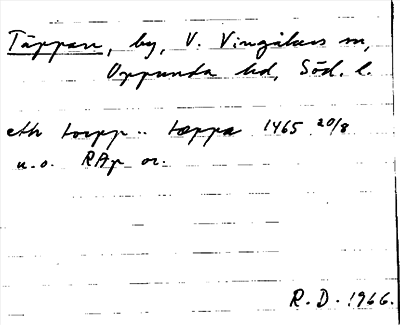 Täppan, by, V. Vingåkers sn,
Oppunda hd, Söd. l.
eth torpp .. tæppa 1465 20/8
u.o. RAp or.
R. D. 1966.